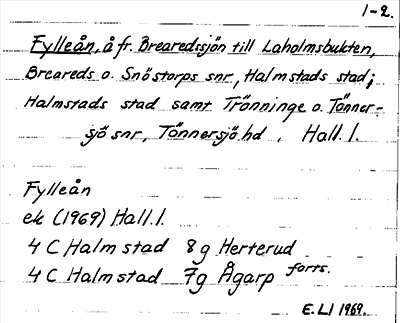 1-2.
Fylleån, å fr. Brearedssjön till Laholmsbukten,
Breareds o. Snöstorps snr, Halmstads stad;
Halmstads stad samt Trönninge o. Tönner-
sjö snr, Tönnersjö hd, Hall. l.
Fylleån
ek (1969) Hall. l.
4 C Halmstad 8 g Herterud
4 C Halmstad 7g Ågarp forts.
E. LI 1969.